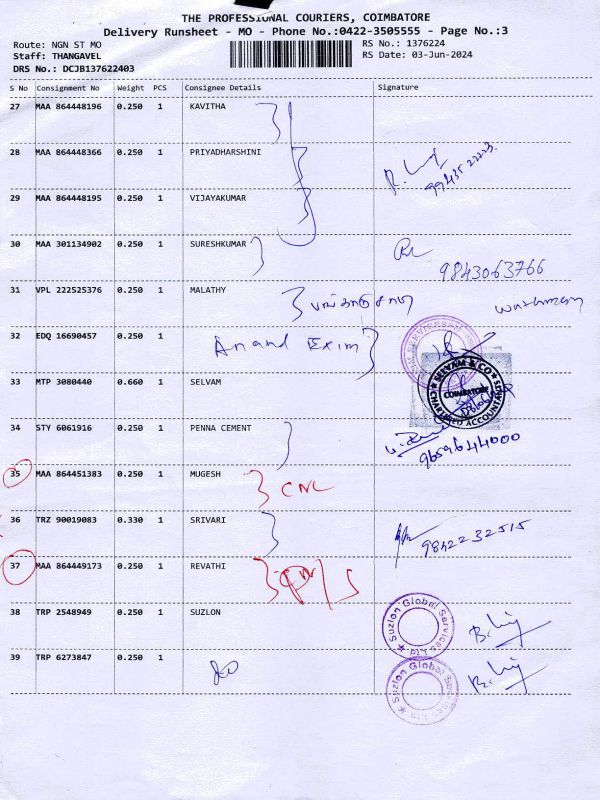 THE PROFESSIONAL COURIERS, COIMBATORE
Delivery Runsheet - MO - Phone No.:0422-3505555 - Page No.:3
Route: NGN ST MO
RS No.: 1376224
Staff: THANGAVEL
RS Date: 03-Jun-2024
DRS No.: DCJB137622403
S No Consignment No Weight PCS Consignee Details Signature
27 MAA 864448196 0.250 1 KAVITHA
28 MAA 864448366 0.250 1 PRIYADHARSHINI
99435 22223
29 MAA 864448195 0.250 1 VIJAYAKUMAR
30 MAA 301134902 0.250 1 SURESHKUMAR
9843063766
31 VPL 222525376 0.250 1 MALATHY
32 EDQ 16690457 0.250 1 Anand Exim
33 MTP 3080440 0.660 1 SELVAM
SELVAM & CO
COIMBATORE
CHARTERED ACCOUNTANTS
34 STY 6061916 0.250 1 PENNA CEMENT
9659644000
35 MAA 864451383 0.250 1 MUGESH CNL
36 TRZ 90019083 0.330 1 SRIVARI 9842232515
37 MAA 864449173 0.250 1 REVATHI
38 TRP 2548949 0.250 1 SUZLON
Suzlon Global Services
39 TRP 6273847 0.250 1
Suzlon Global Services